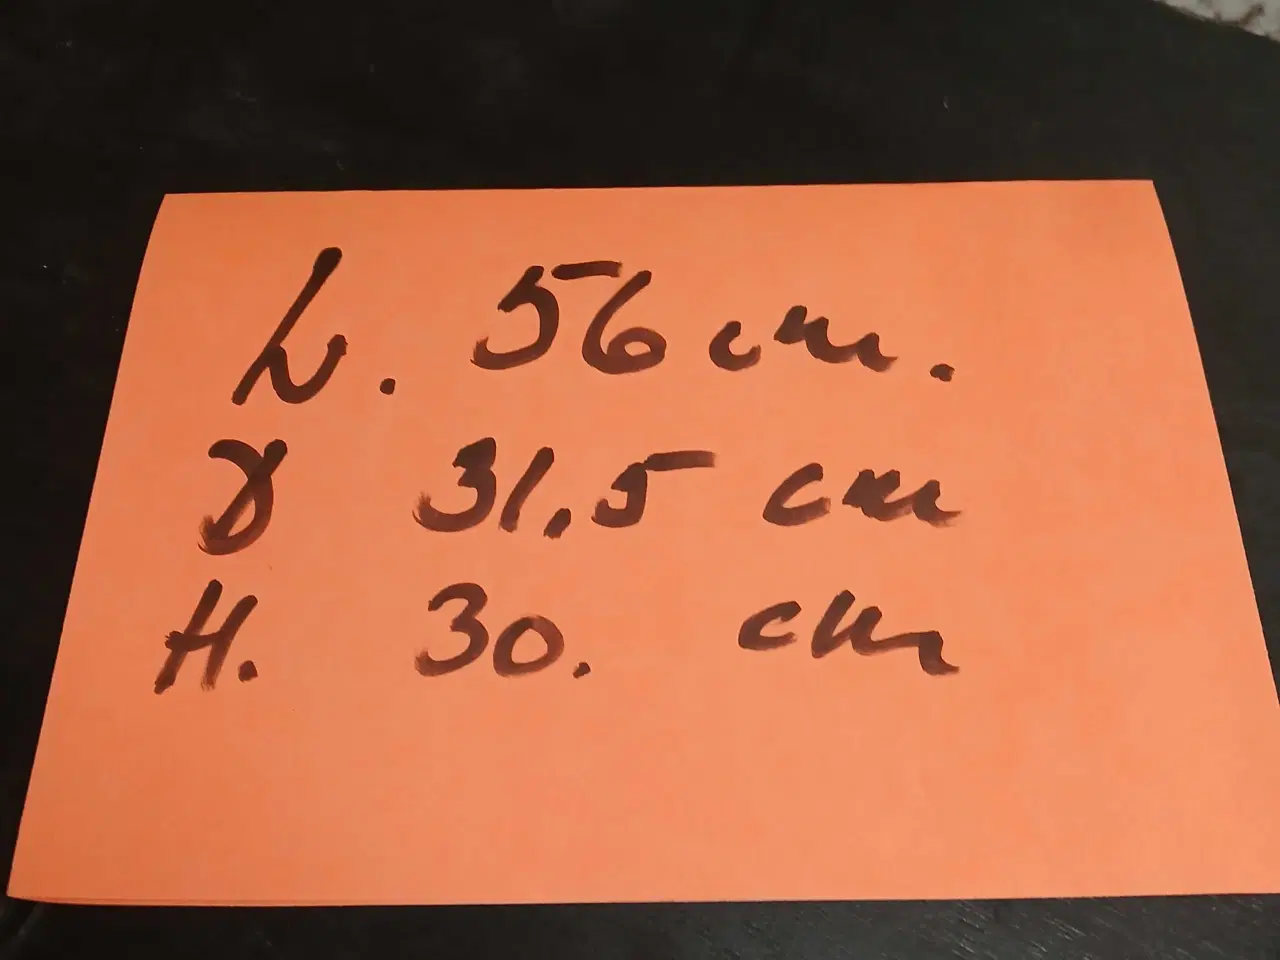 L. 56 cm.
D 31.5 cm
H. 30. cm